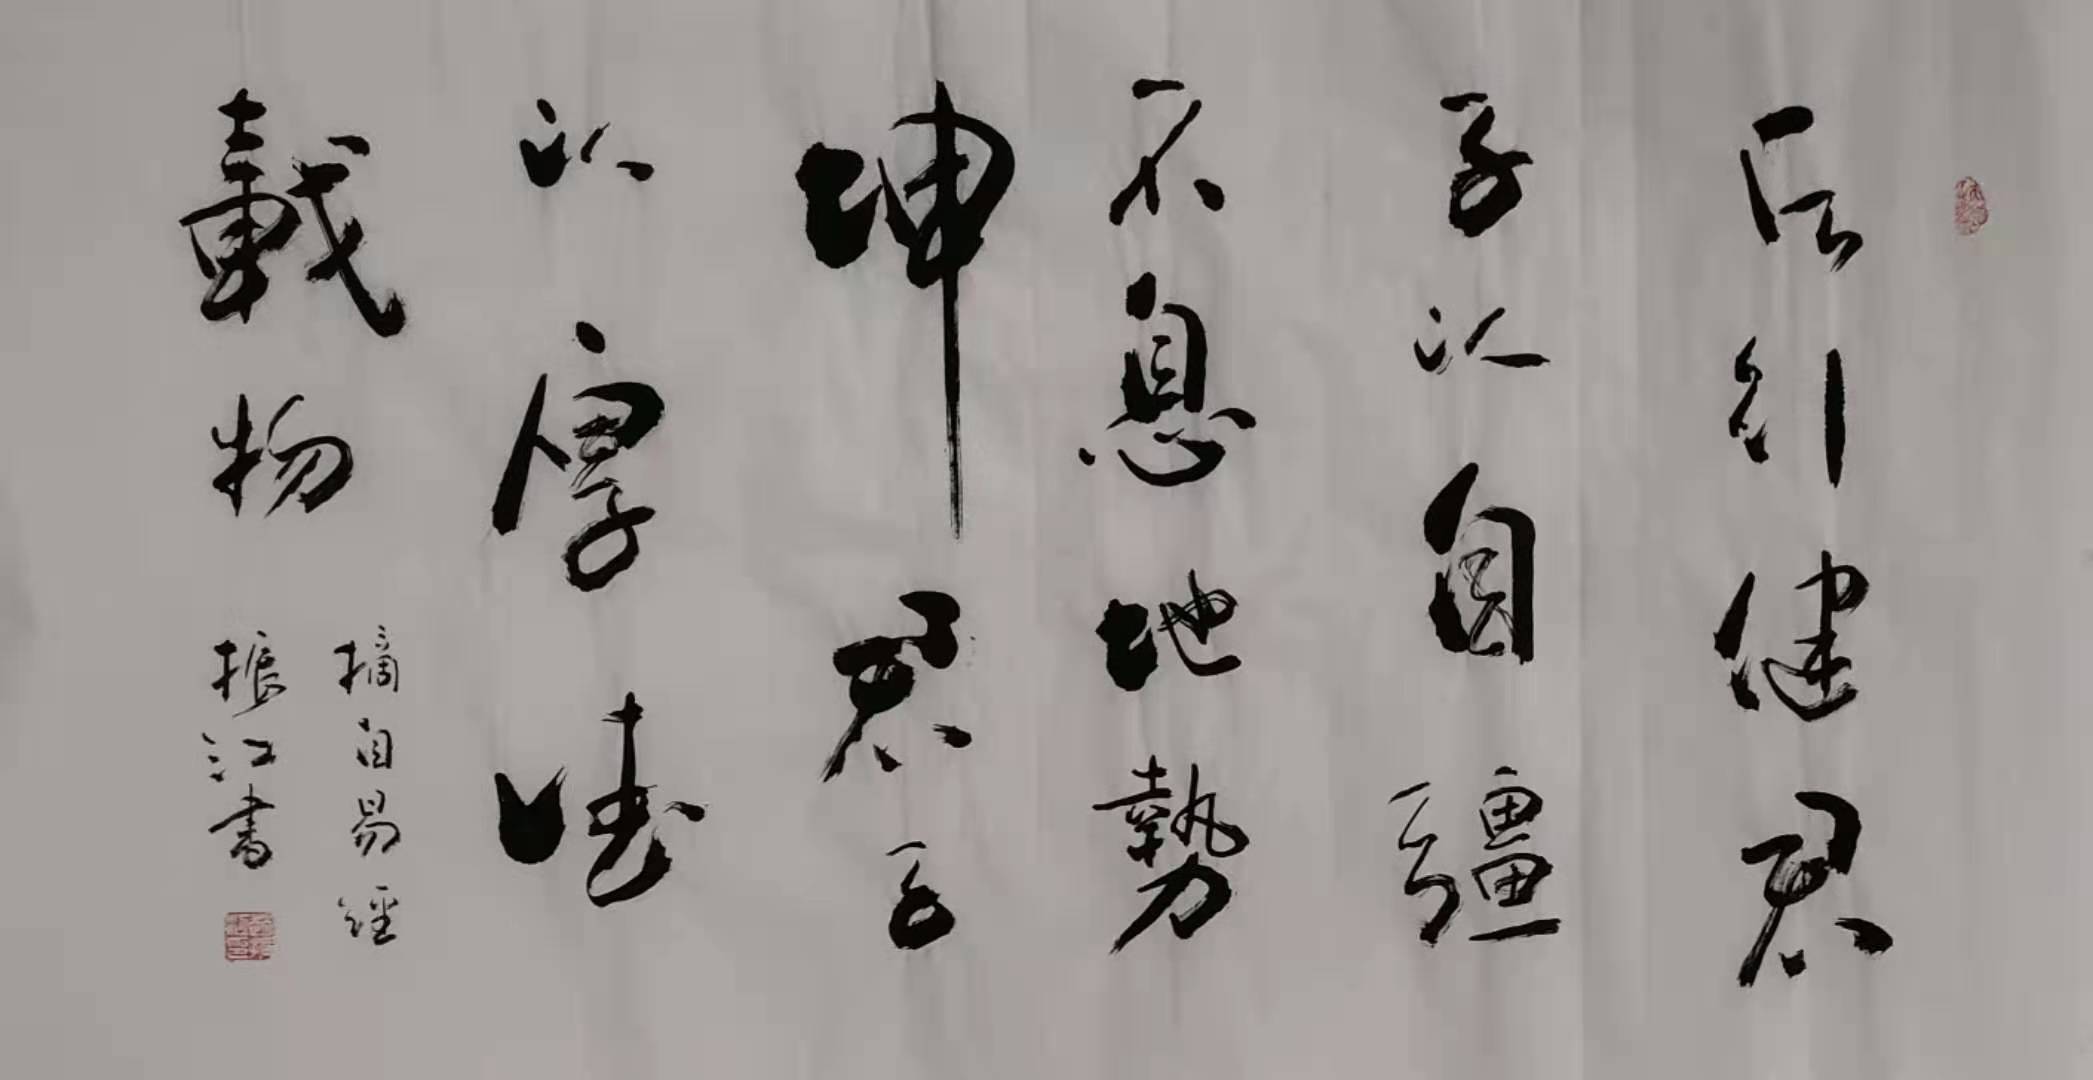 天行健君
子以自彊
不息地勢
坤君子
以厚德
載物
摘自易經
振江書